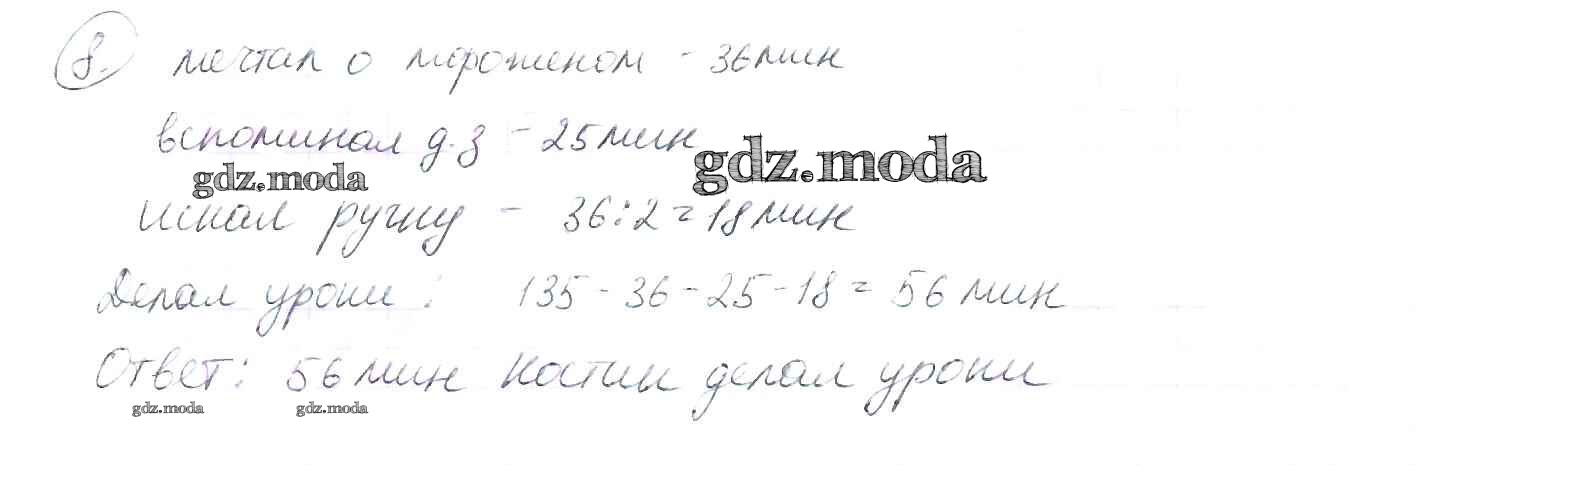 8. мечтал о мороженом - 36 мин
вспоминал д.з - 25 мин
gdz.moda
gdz.moda
искал ручку - 36:2=18 мин
Делал уроки: 135-36-25-18=56 мин
Ответ: 56 мин Костик делал уроки
gdz.moda gdz.moda